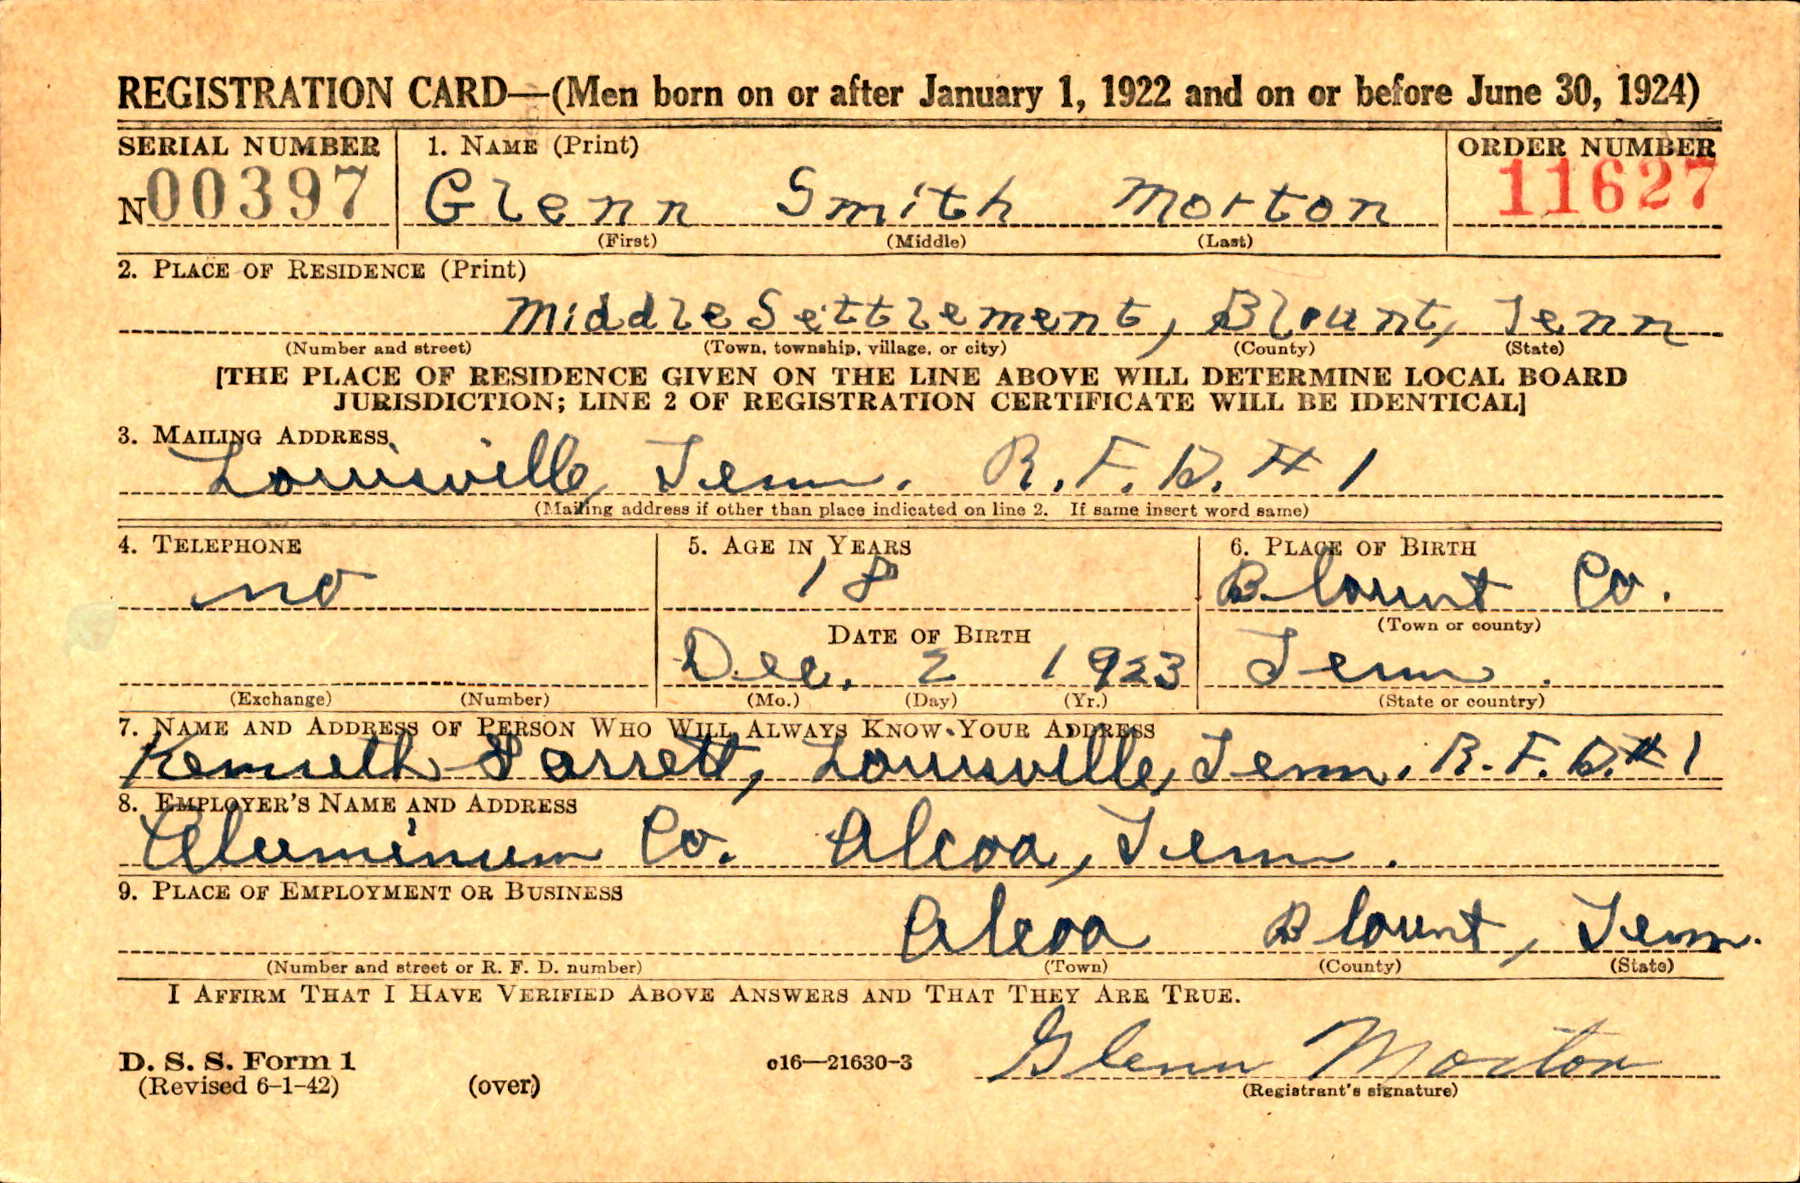 REGISTRATION CARD—(Men born on or after January 1, 1922 and on or before June 30, 1924)
SERIAL NUMBER 1. NAME (Print) ORDER NUMBER
N00397 Glenn Smith Morton 11627
(First) (Middle) (Last)
2. PLACE OF RESIDENCE (Print)
Middle Settlement, Blount, Tenn
(Number and street) (Town, township, village, or city) (County) (State)
[THE PLACE OF RESIDENCE GIVEN ON THE LINE ABOVE WILL DETERMINE LOCAL BOARD
JURISDICTION; LINE 2 OF REGISTRATION CERTIFICATE WILL BE IDENTICAL]
3. MAILING ADDRESS
Louisville, Tenn. R.F.D. # 1
(Mailing address if other than place indicated on line 2. If same insert word same)
4. TELEPHONE 5. AGE IN YEARS 6. PLACE OF BIRTH
no 18 Blount Co.
(Town or county)
DATE OF BIRTH
Dec. 2 1923 Tenn.
(Exchange) (Number) (Mo.) (Day) (Yr.) (State or country)
7. NAME AND ADDRESS OF PERSON WHO WILL ALWAYS KNOW YOUR ADDRESS
Kenneth Garrett, Louisville, Tenn. R.F.D. # 1
8. EMPLOYER'S NAME AND ADDRESS
Aluminum Co. Alcoa, Tenn.
9. PLACE OF EMPLOYMENT OR BUSINESS
Alcoa Blount, Tenn.
(Number and street or R. F. D. number) (Town) (County) (State)
I AFFIRM THAT I HAVE VERIFIED ABOVE ANSWERS AND THAT THEY ARE TRUE.
Glenn Morton
D. S. S. Form 1 c16—21630-3
(Revised 6-1-42) (over) (Registrant's signature)